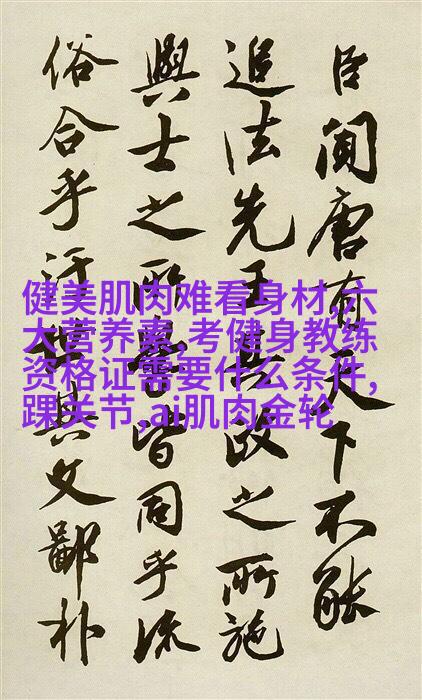 臣聞唐有天下不能
追法先王其政之所施
與士之所皆同乎流
俗合乎汙其文鄙朴
健美肌肉难看身材,六
大营养素,考健身教练
资格证需要什么条件,
踝关节,ai肌肉金轮